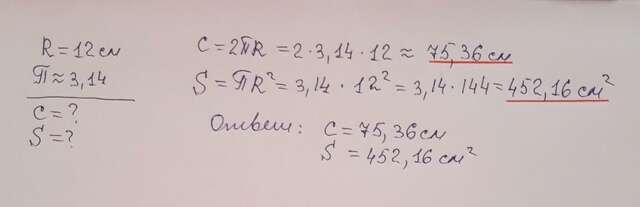 R = 12 см
П ≈ 3,14
C = ?
S = ?
C = 2ПR = 2 · 3,14 · 12 ≈ 75,36 см
S = ПR² = 3,14 · 12² = 3,14 · 144 = 452,16 см²
Ответ: C = 75,36 см
S = 452,16 см²